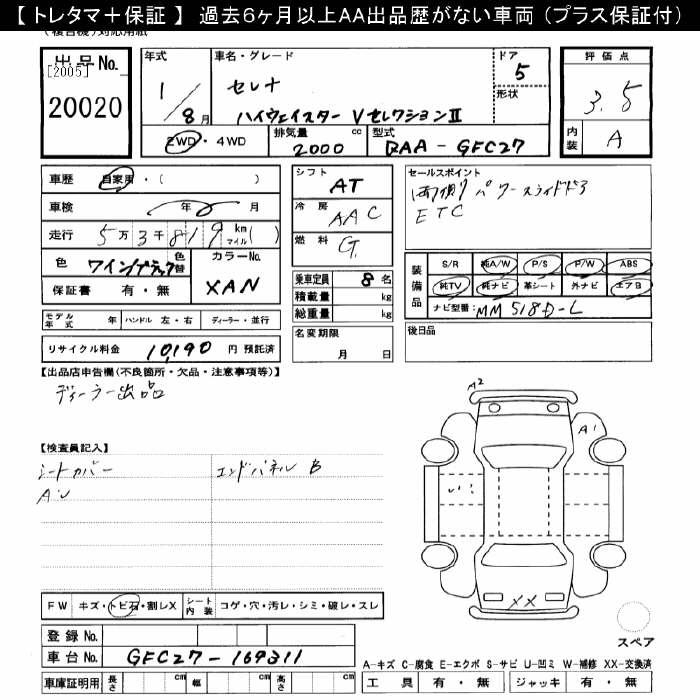 【トレタマ＋保証】 過去６ヶ月以上ＡＡ出品歴がない車両（プラス保証付）
出品No.
[2005]
20020
年式
1/8月
車名・グレード
セレナ
ハイウェイスター VセレクションⅡ
ドア
5
形状
評価点
3.5
内装
A
2WD・4WD
排気量
2000 cc
型式
DAA-GFC27
車歴 自家用・（ ）
車検 年 月
走行 5万3千819 km マイル( )
色 ワインブラック 色替
カラーNo.
XAN
保証書 有・無
モデル年式 年 ハンドル 左・右 ディーラー・並行
リサイクル料金 10,190 円 預託済
シフト
AT
冷房
AAC
燃料
G.
乗車定員 8 名
積載量 kg
総重量 kg
名変期限
月 日
セールスポイント
両側パワースライドドア
ETC
装備品
S/R 純A/W P/S P/W ABS
純TV 純ナビ 革シート 外ナビ エアB
ナビ型番: MM518D-L
後日品
【出品店申告欄(不良箇所・欠品・注意事項等)】
ディーラー出品
【検査員記入】
シートカバー
エンドパネル B
A・U
A2
A1
XX
スペア
FW キズ・トビ石・割レX シート内装 コゲ・穴・汚レ・シミ・破レ・スレ
登録No.
車台No. GFC27-169311
車庫証明用 長さ cm 幅 cm 高さ cm
A-キズ C-腐食 E-エクボ S-サビ U-凹ミ W-補修 XX-交換済
工具 有・無 ジャッキ 有・無